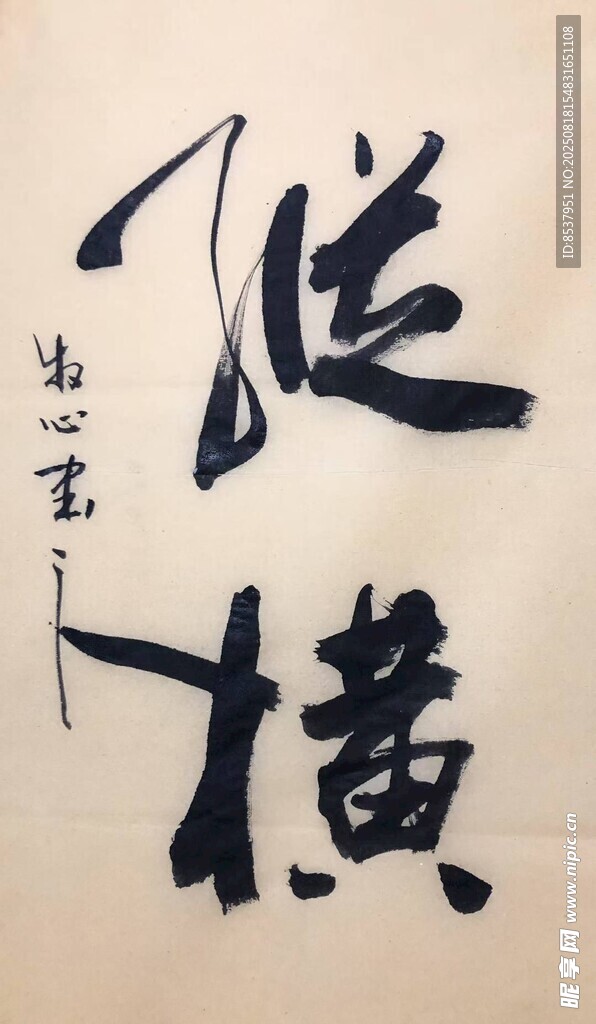 縱橫
牧心書
ID:8537951 NO:20250818154831651108
昵享网 www.nipic.cn